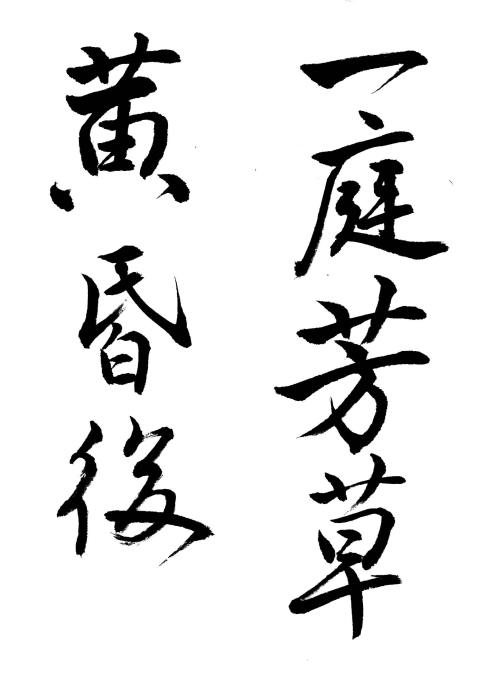 一庭芳草
黄昏後